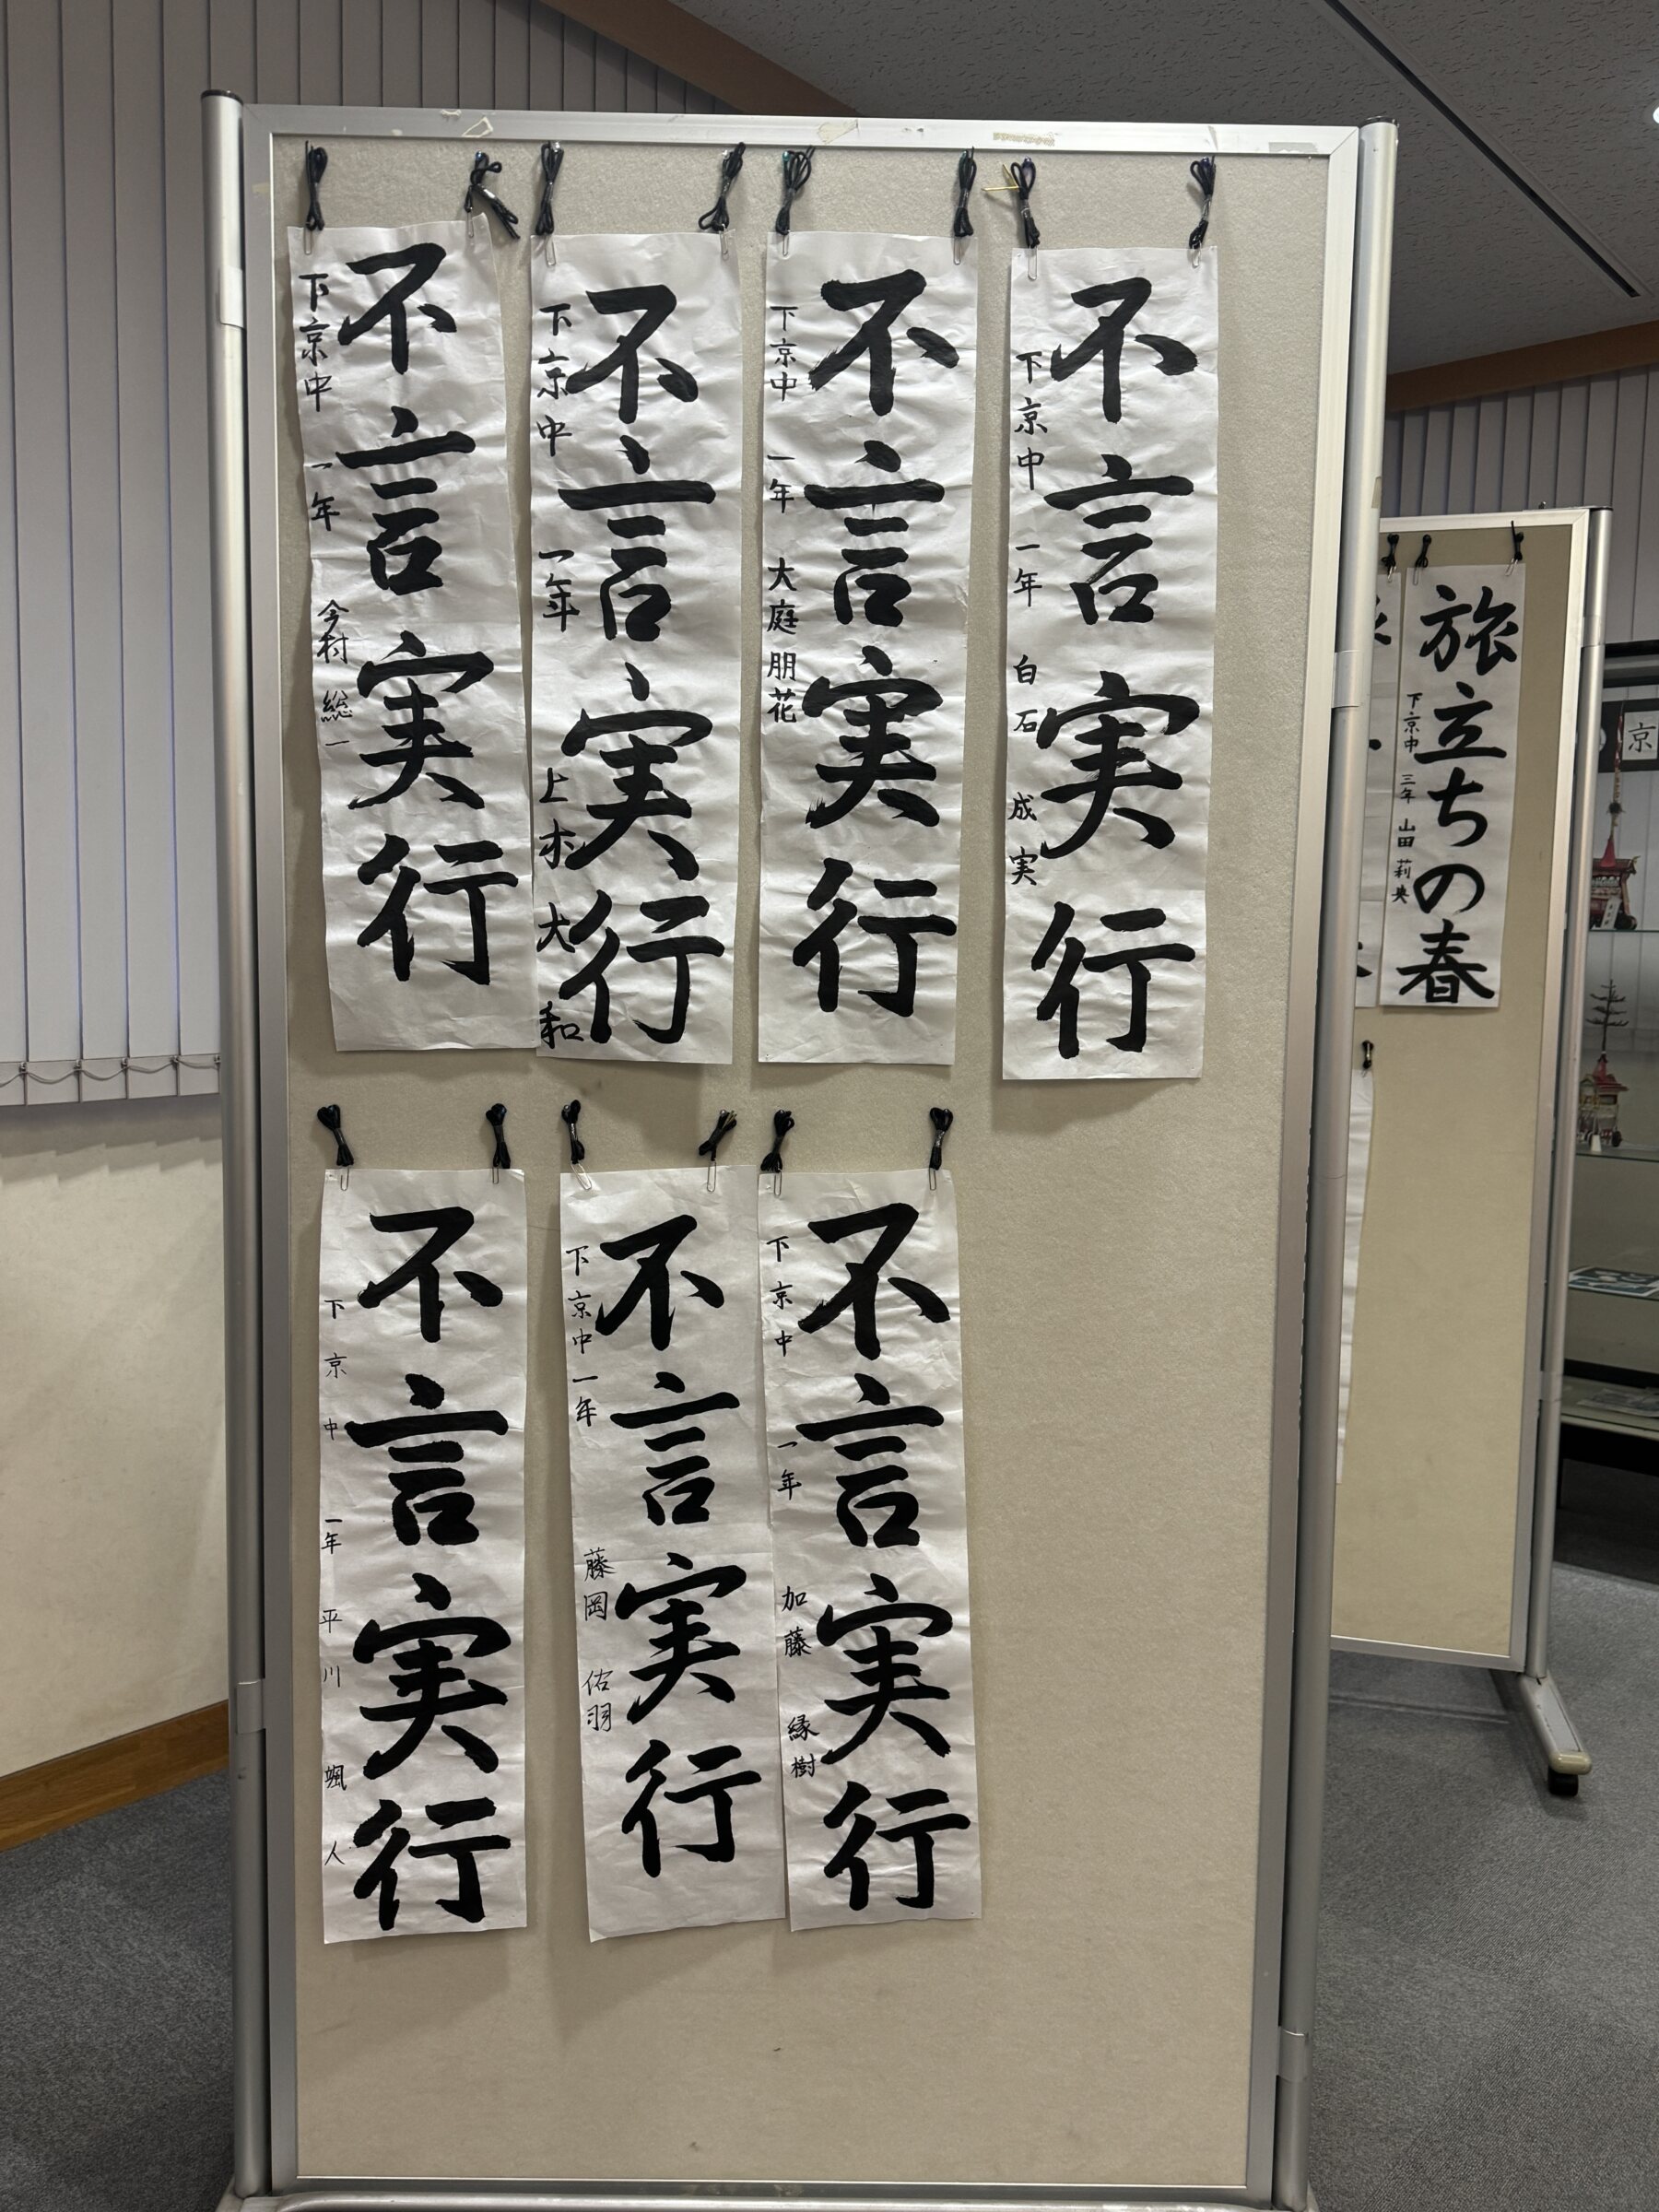 不言実行
下京中 一年 今村 総一
不言実行
下京中 一年 上木 大和
不言実行
下京中 一年 大庭 朋花
不言実行
下京中 一年 白石 成実
不言実行
下京中 一年 平川 颯人
不言実行
下京中 一年 藤岡 佑羽
不言実行
下京中 一年 加藤 縁樹
旅立ちの春
下京中 三年 山田 莉央
京